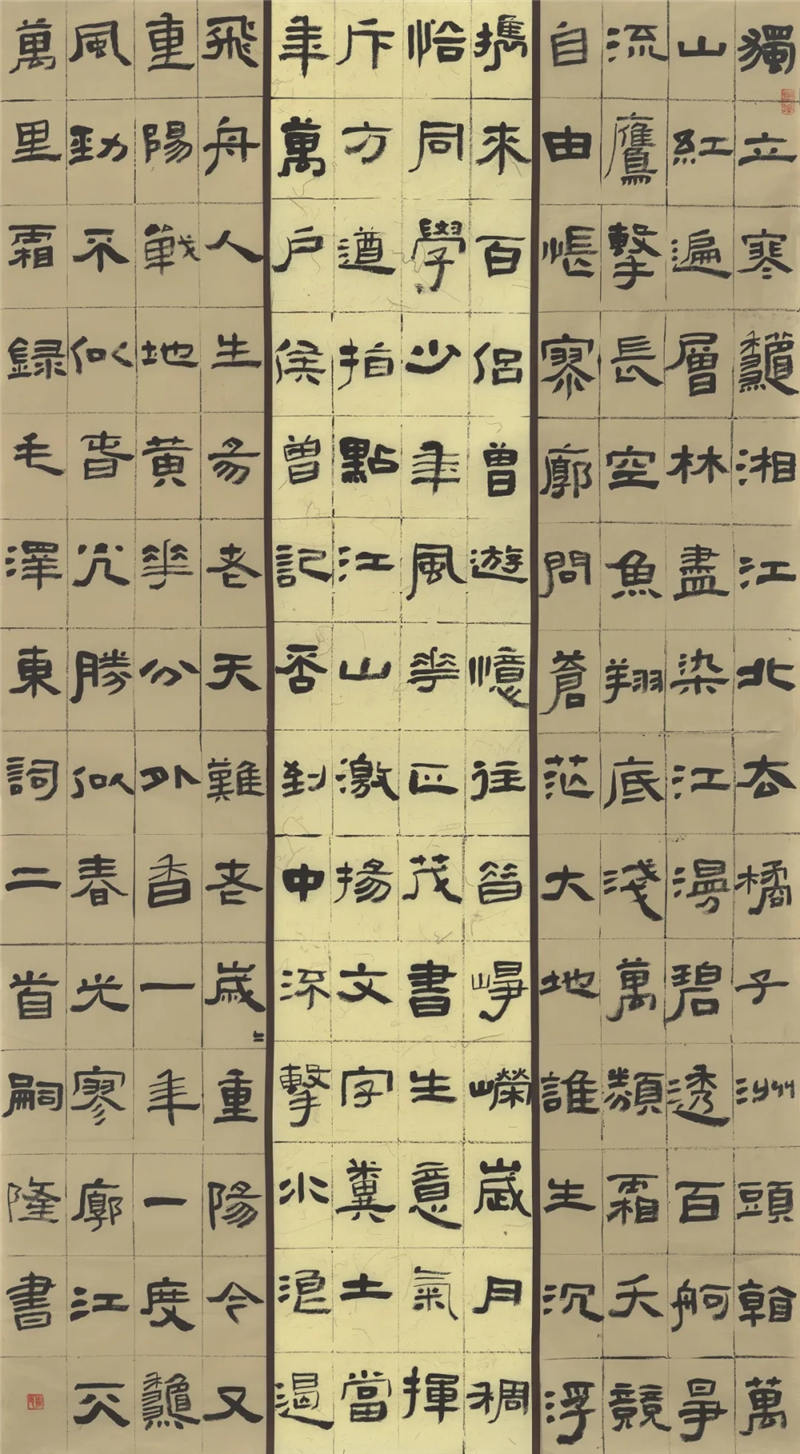 獨立寒龝湘江北去橘子洲頭看萬
山紅遍層林盡染江漫碧透百舸爭
流鷹擊長空魚翔底淺萬類霜天競
自由悵寥廓問蒼茫大地誰生沉浮
攜來百侶曾遊憶往昔崢嶸歲月稠
恰同學少年風華正茂書生意氣揮
斥方遒指點江山激揚文字糞土當
年萬戶侯曾記否到中流擊水浪遏
飛舟人生易老天難老歲〻重陽今又
重陽戰地黃華分外香一年一度龝
風勁不似春光勝似春光寥廓江天
萬里霜錄毛澤東詞二首嗣隆書